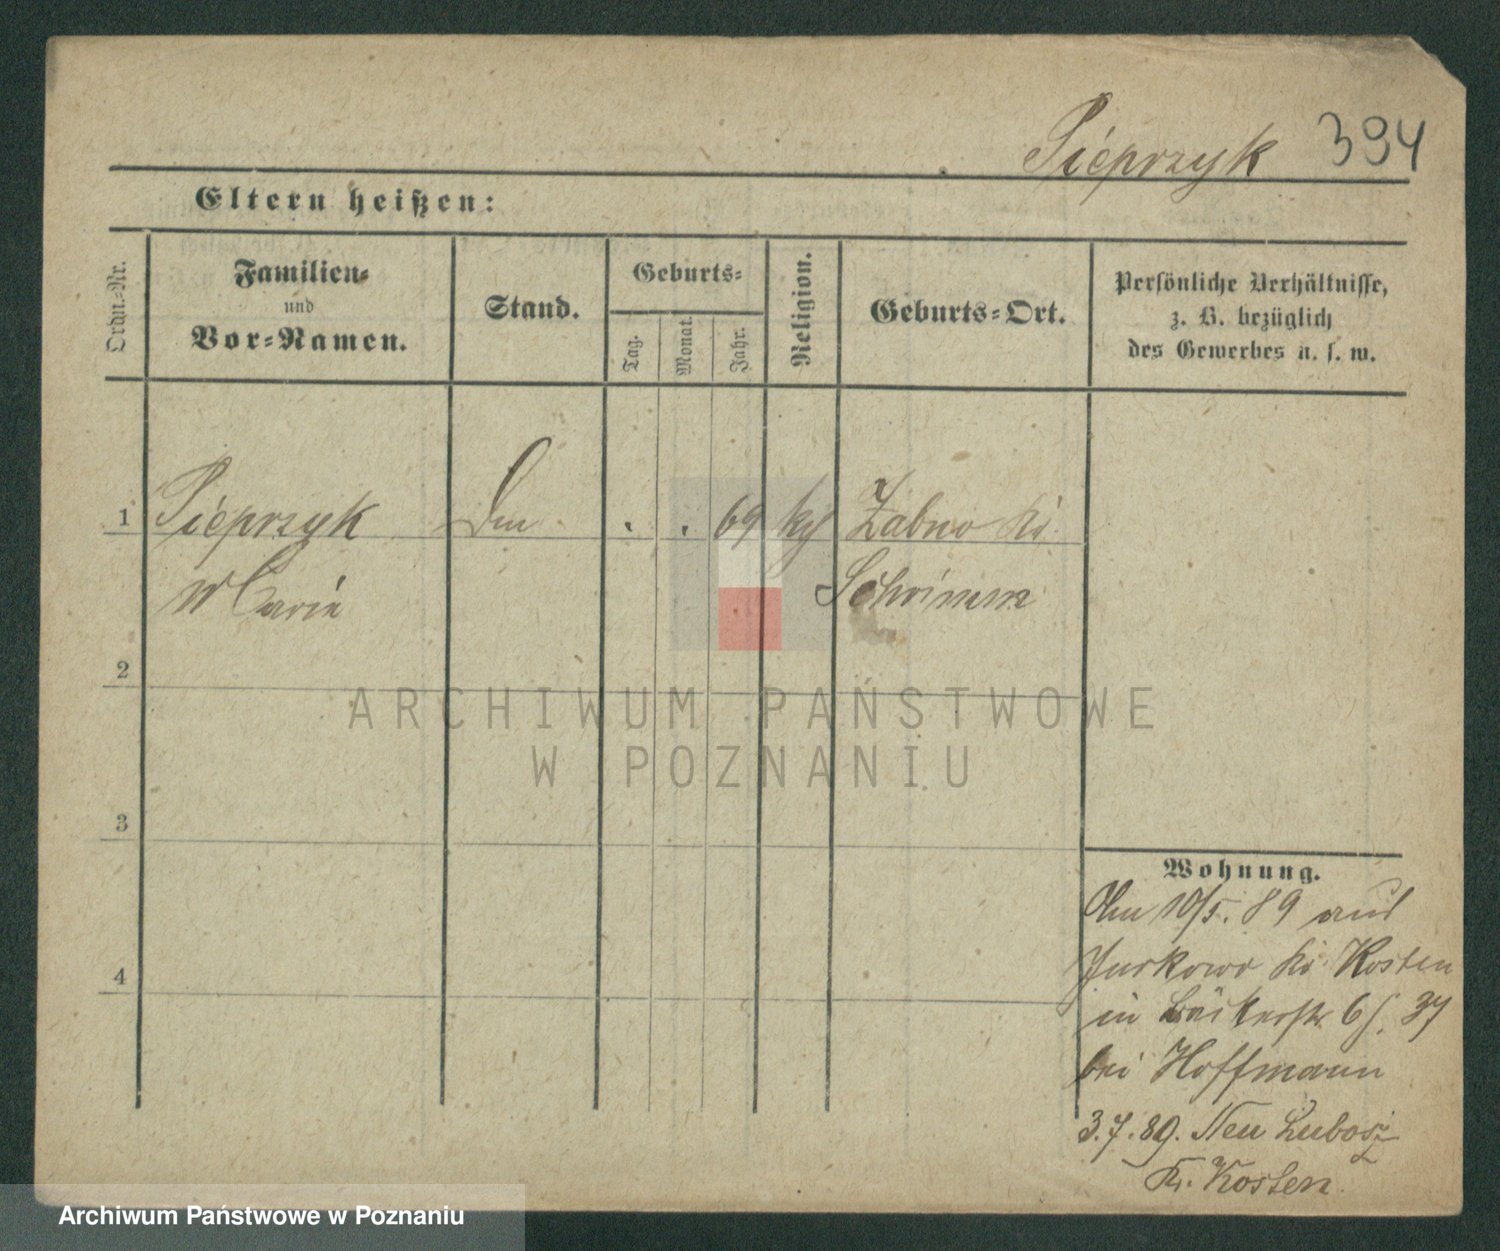 Pieprzyk 394
Eltern heißen:
Ordn.=Nr.
Familien-
und
Vor=Namen.
Stand.
Geburts=
Tag.
Monat.
Jahr.
Religion.
Geburts=Ort.
Persönliche Verhältnisse,
z. B. bezüglich
des Gewerbes u. s. w.
1 Pieprzyk . . 69 Zabno Kr.
Marie Schrimm
2
3
4
Wohnung.
10/5. 89 aus
Jurkowo Kr. Kosten
in Bäckerstr. 6 37
bei Hoffmann
3.7.89. Neu Lubosz
Kr. Kosten
ARCHIWUM PAŃSTWOWE
W POZNANIU
Archiwum Państwowe w Poznaniu